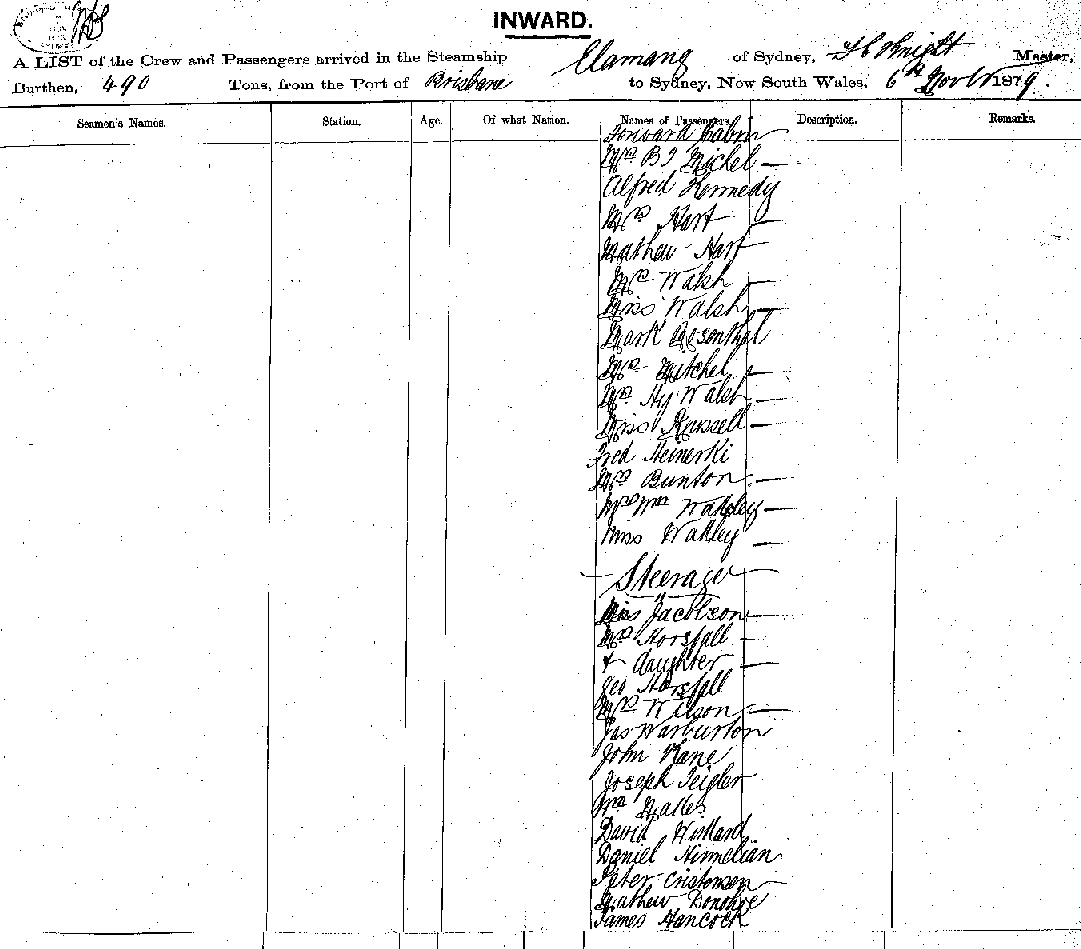 INWARD.
A LIST of the Crew and Passengers arrived in the Steamship Elamang of Sydney, Master,
Burthen, 490 Tons, from the Port of Brisbane to Sydney, New South Wales, 6th Novbr 1879.
Seamen's Names. Station. Age. Of what Nation. Names of Passengers. Description. Remarks.
Forward Cabin
Mrs Michel
Alfred Kennedy
Mrs Hart
Mathew Hart
Mrs Walsh
Miss Walsh
Mark
Mrs Mitchel
Mrs Hy Walsh
Miss Russell
Fred
Mrs Bunton
Mrs Wm Wakley
Miss Wakley
Steerage
Miss
Mrs Horsfall
& daughter
Geo Horsfall
Mrs Wilson
Jas Warburton
John Kane
Joseph Teigler
Wm
David
Daniel
Peter Cristonsen
Mathew Donohoe
James Hancock